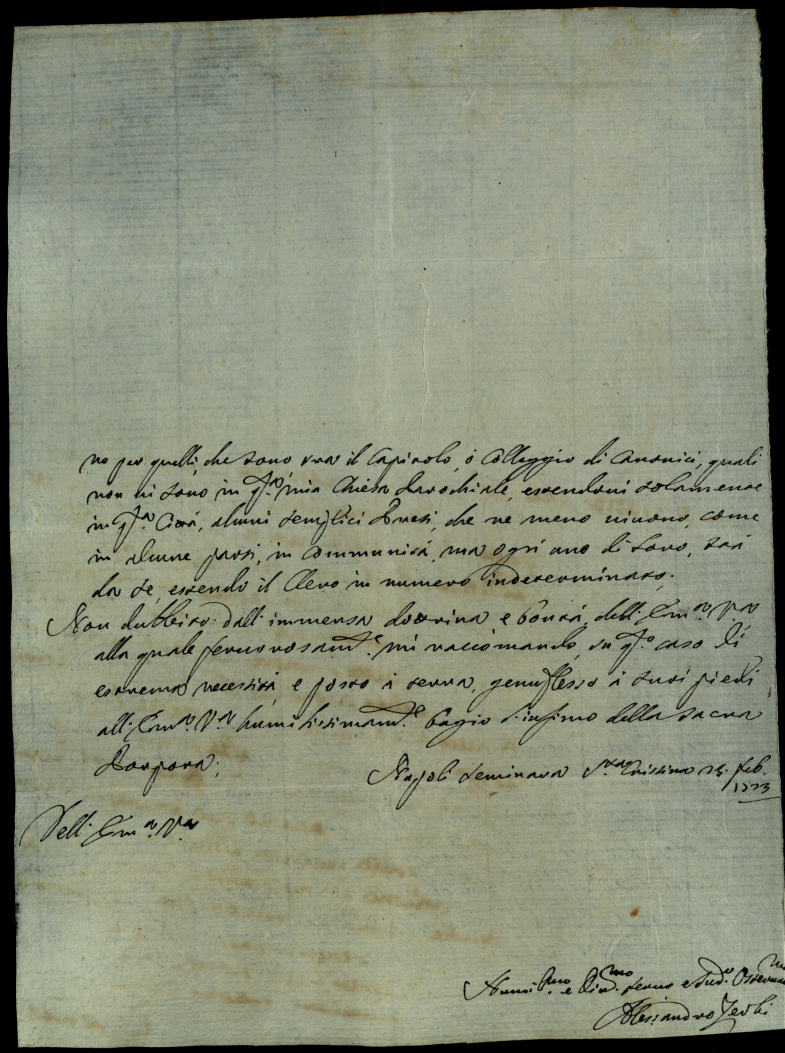 no per quelli, che sono tra il Capitolo, ó Colleggio di Canonici, quali
non vi sono in q.ta mia Chiesa Parochiale, essendovi solamente
in q.ta Cittá, alcuni semplici Preti, che ne meno vivono, come
in alcune parti, in Communitá, ma ogni uno di loro, stá
da se, essendo il Clero in numero indeterminato;
Non dubbito dall'immensa dottrina e bontá, dell'Em.a V.a
alla quale fervorosam.te mi raccomando, in q.to caso di
estrema necessitá, e posto á terra, genuflesso á suoi piedi,
all'Em.a V.a humilissimam.te bagio l'infimo della sacra
Porpora;
Napoli Seminara S.ta Cristina 25. feb.
1773
Dell'Em.a V.a
Humil.mo e Div.mo servo e
Alessandro Zerbi